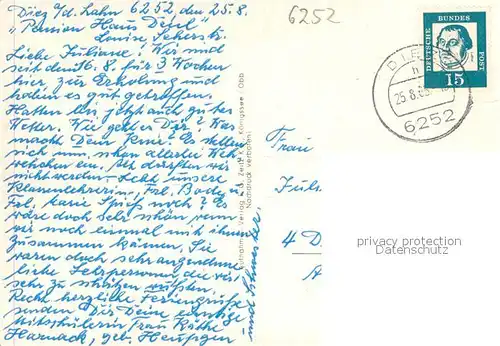 Diez a/d. Lahn 6252 den 25.8.
"Pension Haus Desel"
Louise Seherstr.
Liebe Juliane! Wir sind
seit dem 16.8. für 3 Wochen
hier zur Erholung und
haben es gut getroffen.
Hatten bis jetzt auch gutes
Wetter. Wie geht es Dir? Was
macht Dein Knie? Es stellen
sich nun allerlei Weh-
wehchen ein, alt dürften wir
nicht werden. Lebt unsere
Klassenlehrerin, Frl. Bode u.
Frl. Marie Spieß noch? Es
wäre doch sehr schön, wenn
wir noch einmal mit ihnen
zusammen kämen. Sie
waren doch sehr angenehme
liebe Lehrpersonen die wir
sehr zu schätzen wußten.
Recht herzliche Feriengrüße
senden Dir Deine einstige
Mitschülerin Frau Käthe
Harnack, geb. Heupgen
und Schwester,
Verlag
Königssee Obb
Nachdruck verboten
6252
DEUTSCHE BUNDESPOST
15
25.8.
6252
Frau
Juli
4 D
A
privacy protection
Datenschutz